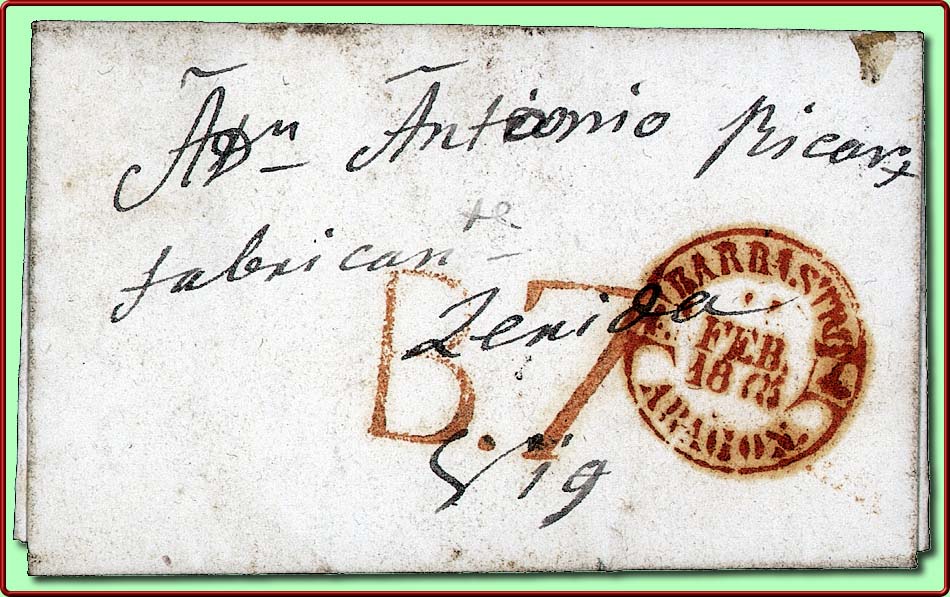 A Dn Antonio Ricart
fabricante
B.7
Lerida
BARBASTRO
FEB.
ARAGON.